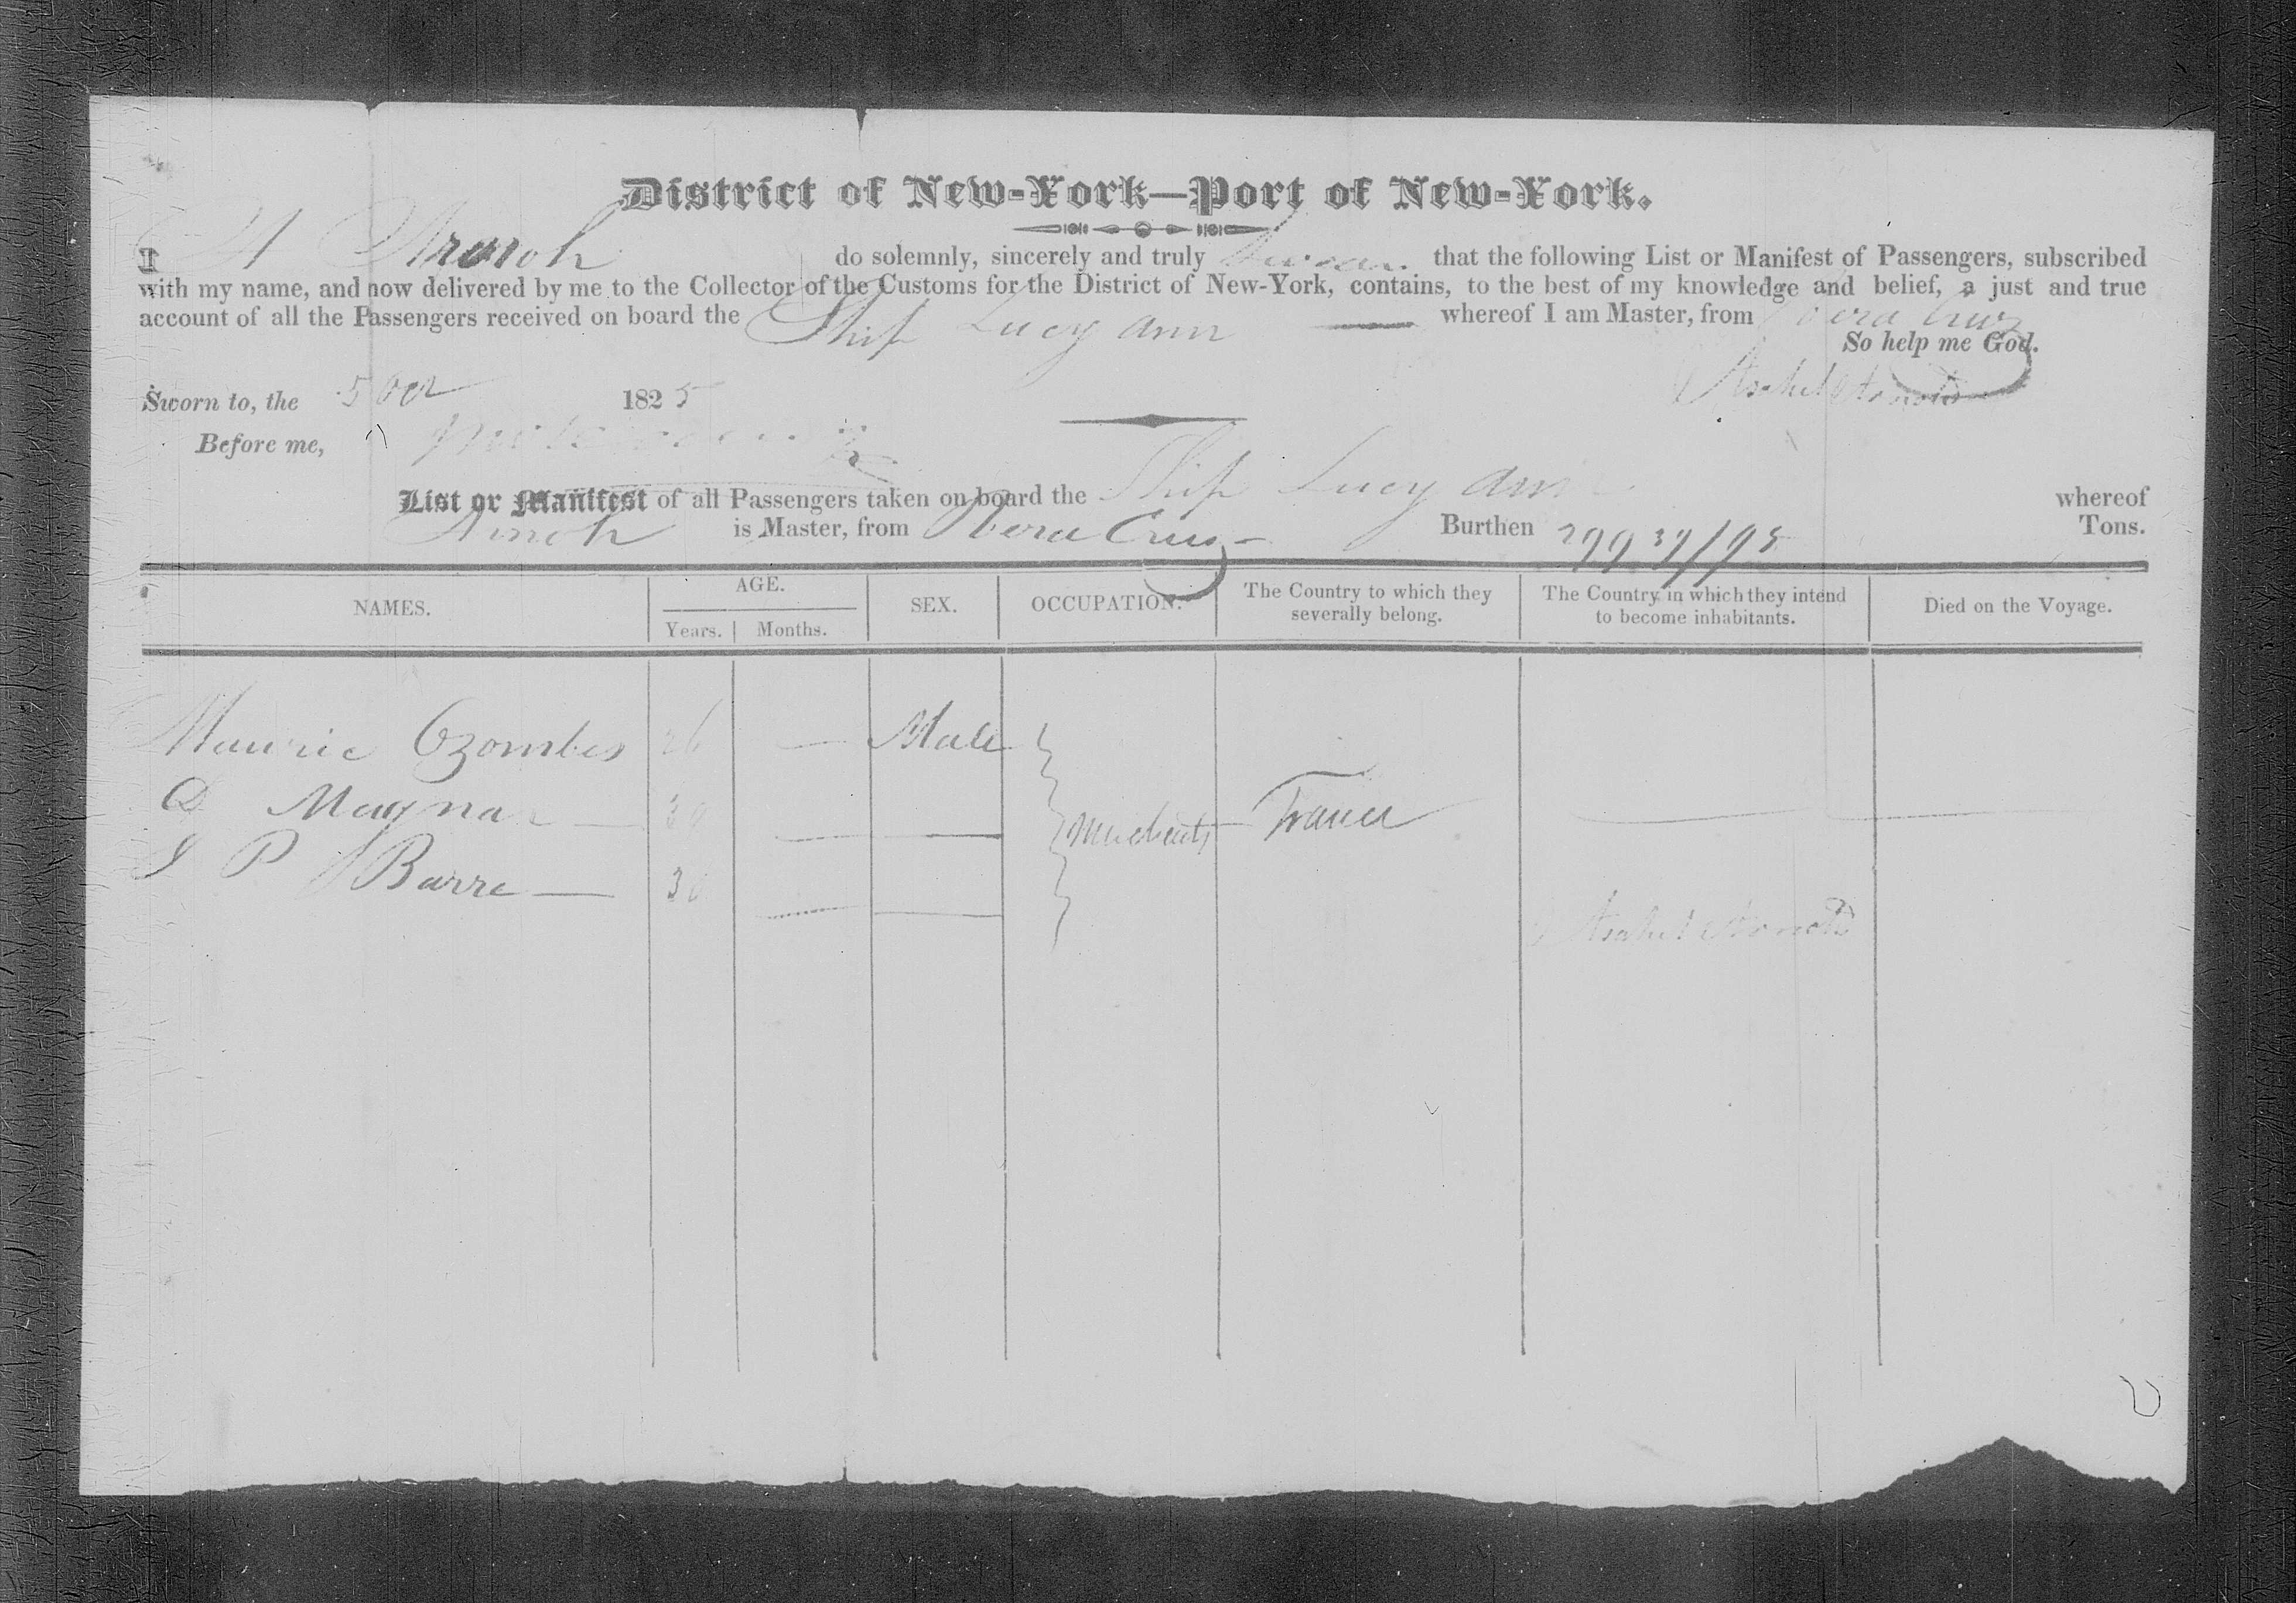 District of New-York—Port of New-York.
I A Arnold do solemnly, sincerely and truly swear that the following List or Manifest of Passengers, subscribed
with my name, and now delivered by me to the Collector of the Customs for the District of New-York, contains, to the best of my knowledge and belief, a just and true
account of all the Passengers received on board the Ship Lucy Ann — whereof I am Master, from Vera Cruz
So help me God.
Sworn to, the 5 Oct 1825 Asahel Arnold
Before me,
List or Manifest of all Passengers taken on board the Ship Lucy Ann whereof
Arnold is Master, from Vera Cruz - Burthen 299 39/95 Tons.
NAMES. AGE. SEX. OCCUPATION. The Country to which they severally belong. The Country in which they intend to become inhabitants. Died on the Voyage.
Years. Months.
Maurice 26 — Male
D Magnan — —
Merchants — France — —
J P Barre — 30 — —
Asahel Arnold